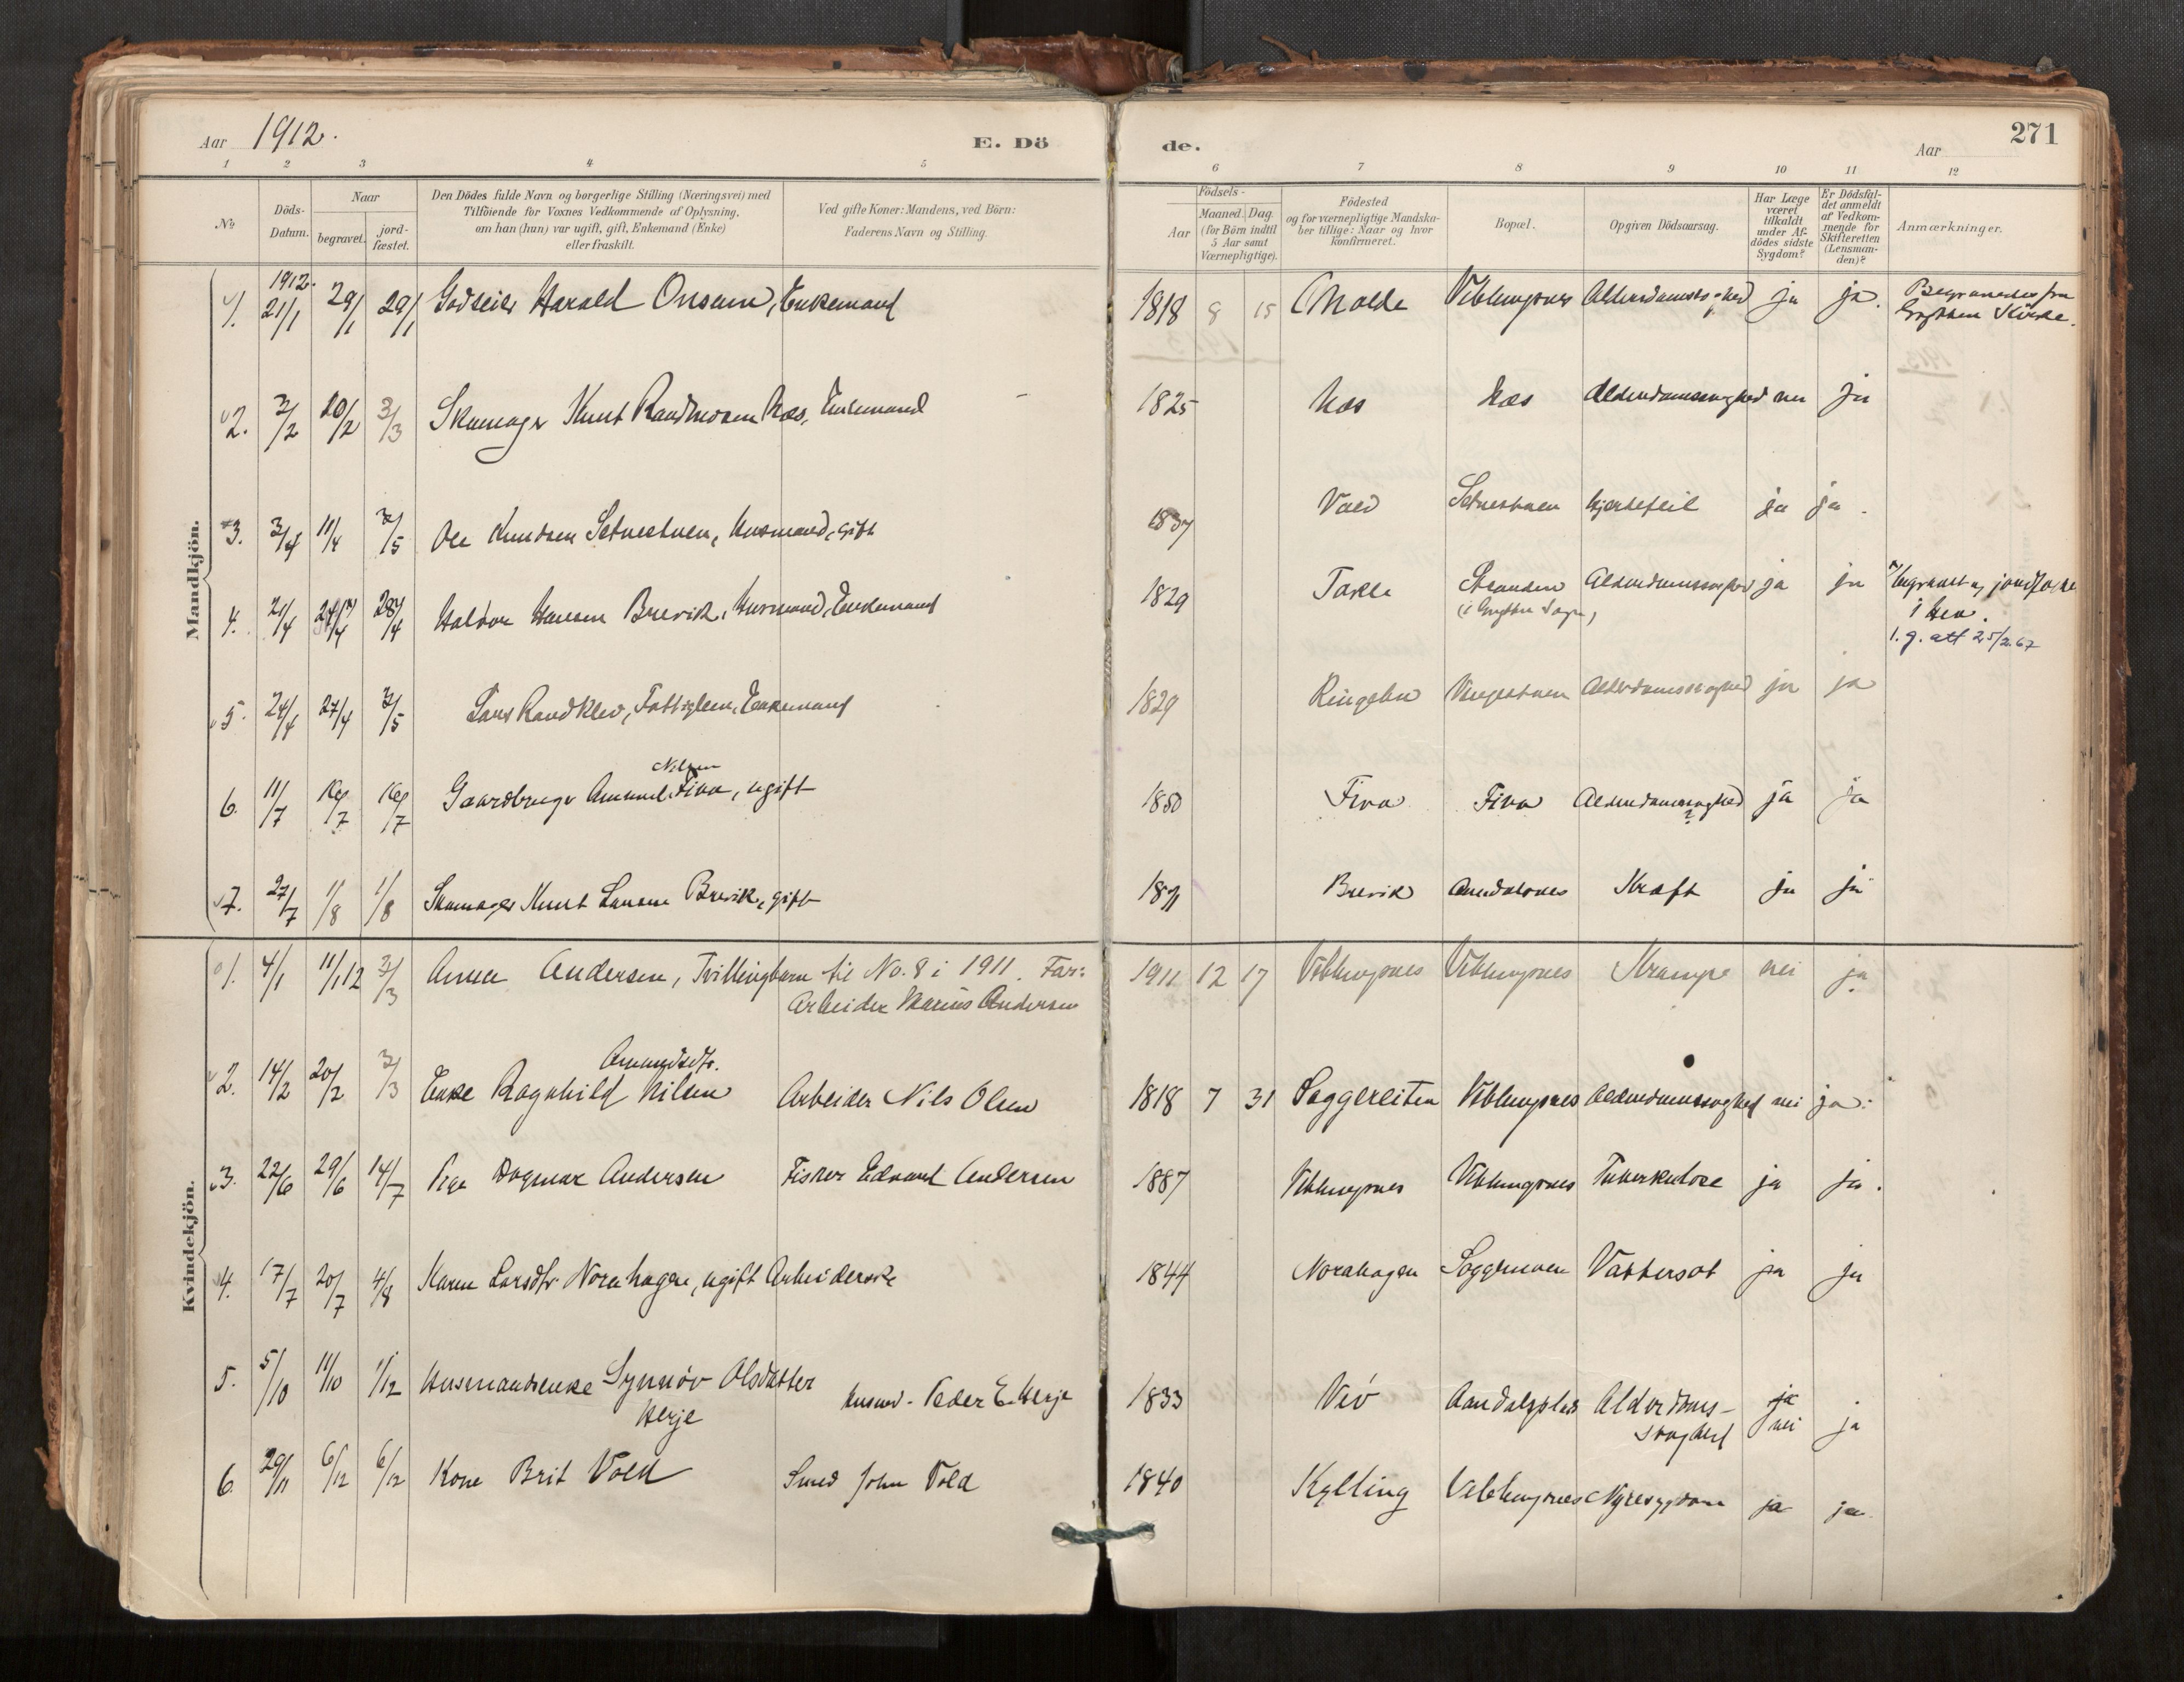 Aar 1912.
E. Dö
de.
Aar
271
1 2 3 4 5 6 7 8 9 10 11 12
No
Döds-
Datum.
Naar
begravet.
jord-
fæstet.
Den Dödes fulde Navn og borgerlige Stilling (Næringsvei) med
Tilföiende for Voxnes Vedkommende af Oplysning,
om han (hun) var ugift, gift, Enkemand (Enke)
eller fraskilt.
Ved gifte Koner: Mandens, ved Börn:
Faderens Navn og Stilling.
Födsels-
Aar
Maaned. Dag.
(for Börn indtil
5 Aar samt
Værnepligtige).
Födested
og for værnepligtige Mandska-
ber tillige: Naar og hvor
konfirmeret.
Bopæl.
Opgiven Dödsaarsag.
Har Læge
været
tilkaldt
under Af-
dödes sidste
Sygdom?
Er Dödsfal-
det anmeldt
af Vedkom-
mende for
Skifteretten
(Lensman-
den)?
Anmærkninger.
Mandkjön.
1912.
1. 21/1 29/1 29/1 Godseier Harald Onsum, Enkemand 1818 8 15 Molde Veblungsnes Alderdomssvaghed ja ja.
Kirke.
2. 3/2 20/2 3/3 Skomager Knut Næs, Enkemand 1825 Næs Næs Alderdomssvaghed nei ja
3. 3/4 11/4 3/5 Ole Knudsen Setnestuen, Husmand, gift 1837 Vold Setnestuen Hjertefeil ja ja.
4. 21/4 28/4 Haldor Hansen Brevik, Husmand, Enkemand 1829 Stranden Alderdomssvaghed ja ja
(i Grytten Sogn)
i Hen.
1. g. att 25/2.67
5. 24/4 27/4 3/5 Lars Randklev, Fattiglem, Enkemand 1829 Ringebu Alderdomssvaghed ja ja
Nilsen
6. 11/7 Gaardbruger Amund Fiva, ugift 1850 Fiva Fiva Alderdomssvaghed ja ja
7. 27/7 1/8 1/8 Skomager Knut Larsen Brevik, gift Brevik Aandalsnes Kræft ja ja
Kvindekjön.
1. 4/1 11/1 12 3/3 Anna Andersen, Tvillingbarn til No. 8 i 1911. Far: 1911 12 17 Veblungsnes Veblungsnes Krampe nei ja
Arbeider Marius Andersen
Amundsdtr.
2. 14/2 20/2 3/3 Enke Ragnhild Nilsen Arbeider Nils Olsen 1818 7 31 Soggereiten Veblungsnes Alderdomssvaghed nei ja.
3. 22/6 29/6 14/7 Pige Dagmar Andersen Fisker Edvard Andersen 1887 Veblungsnes Veblungsnes Tuberkulose ja ja.
4. 17/7 20/7 4/8 Karen Larsdtr. Norahagen, ugift Arbeiderske 1844 Norahagen Soggemoen Vattersot ja ja
5. 5/10 11/10 1/12 Husmandsenke Synnöv Olsdatter Husmd. Peder E. Herje 1833 Veö Aandalsplads Alderdoms- ja
Herje svaghed nei ja
6. 29/11 6/12 6/12 Kone Brit Vold Smed John Vold 1840 Kylling Veblungsnes Nyresygdom ja ja.